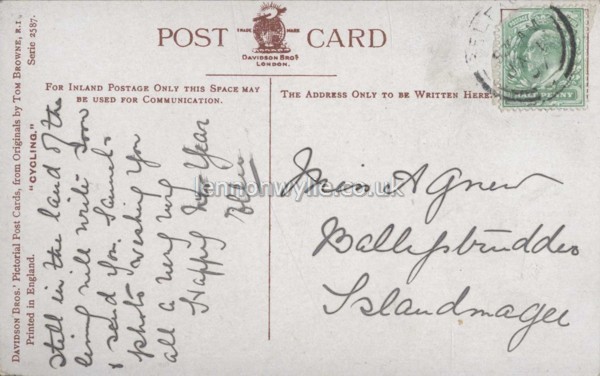 POST CARD
TRADE MARK
DAVIDSON BROS.
LONDON.
FOR INLAND POSTAGE ONLY THIS SPACE MAY
BE USED FOR COMMUNICATION.
THE ADDRESS ONLY TO BE WRITTEN HERE.
DAVIDSON BROS.' Pictorial Post Cards, from Originals by TOM BROWNE, R.I.
Printed in England.
"CYCLING."
Serie 2587.
still in the land of the
living will write soon
& send you Samuel's
photo wishing you
all a very very
Happy New Year
Miss Agnew
Ballystrudder
Islandmagee
HALFPENNY
lennonwylie.co.uk